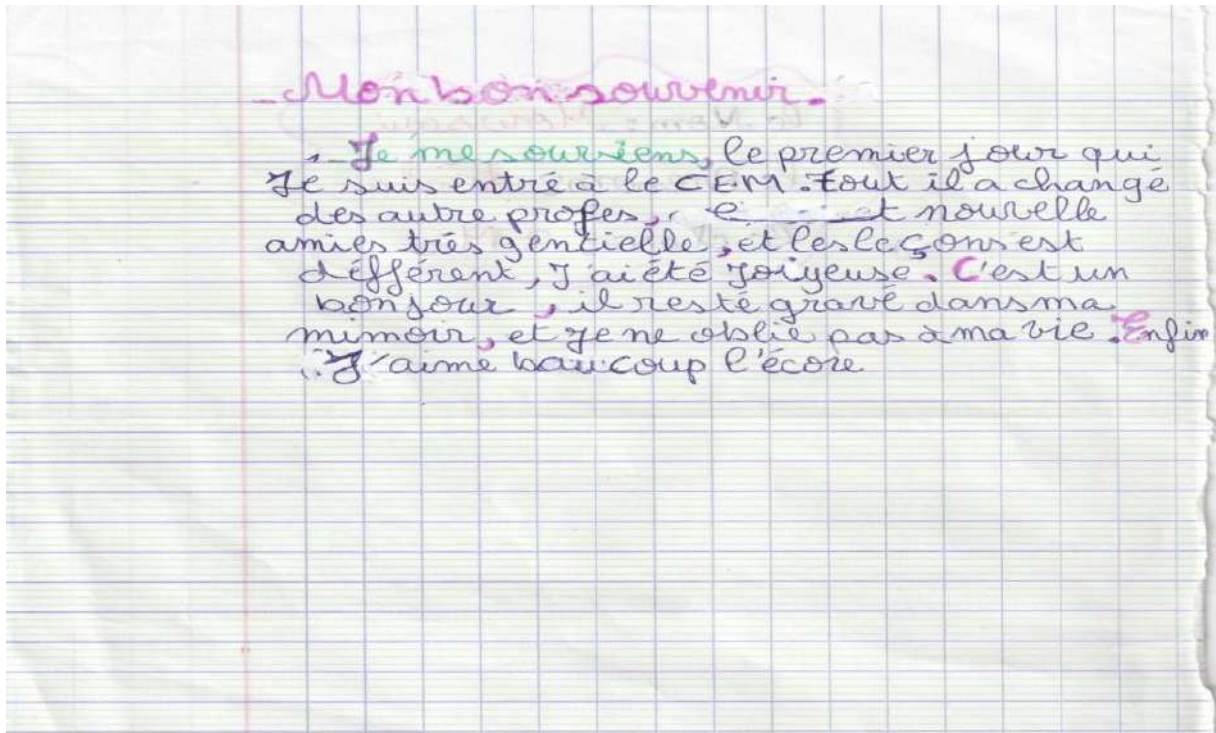 - Mon bon souvenir.
- Je me souviens, le premier jour qui
Je suis entré à le CEM. tout il a changé
des autre profes, et nouvelle
amies trés gentielle, et les leçons est
défférent, J'ai été Joiyeuse. C'est un
bon jour, il resté gravé dans ma
mimoir, et Je ne oblié pas à ma vie. Enfin
J'aime baucoup l'écore